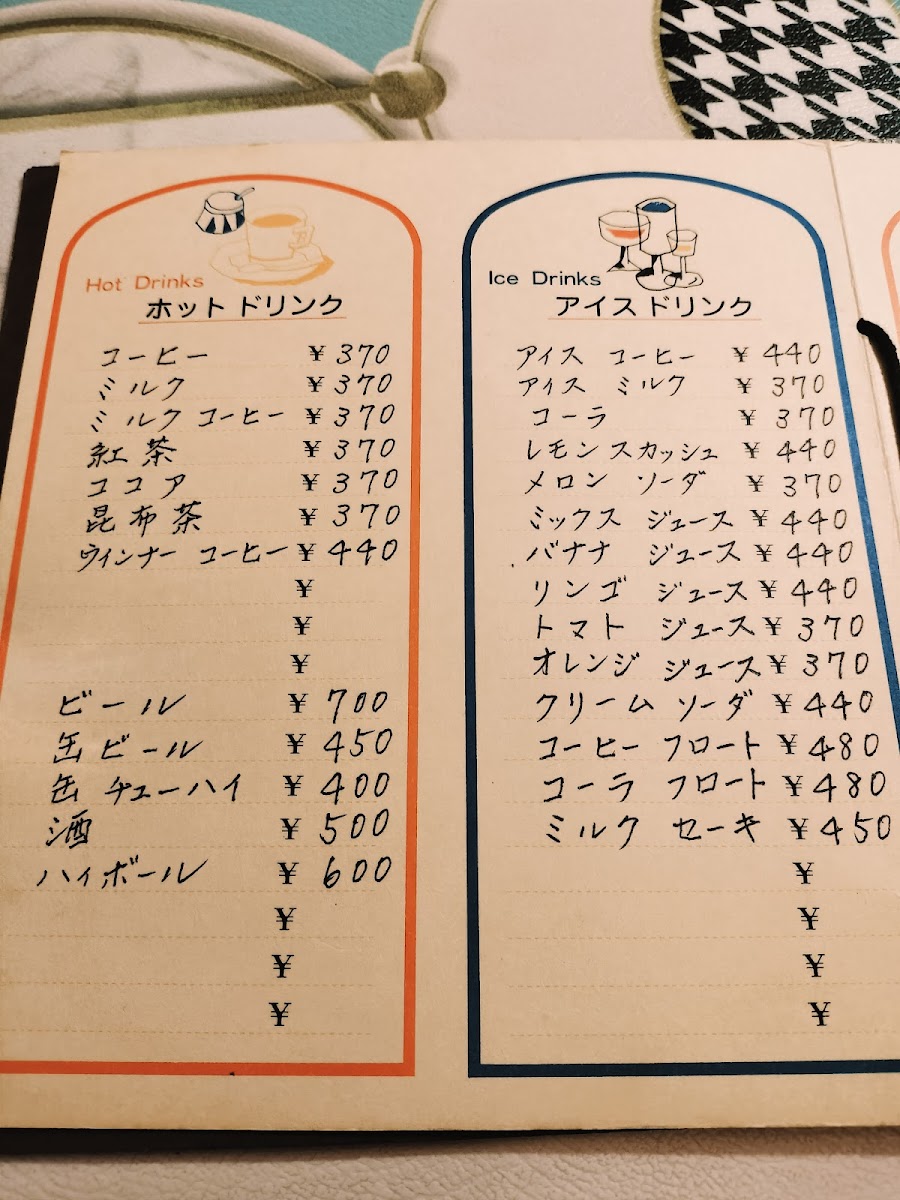 Hot Drinks
ホットドリンク
コーヒー ¥370
ミルク ¥370
ミルクコーヒー ¥370
紅茶 ¥370
ココア ¥370
昆布茶 ¥370
ウィンナー コーヒー ¥440
¥
¥
¥
ビール ¥700
缶ビール ¥450
缶チューハイ ¥400
酒 ¥500
ハイボール ¥600
¥
¥
¥
Ice Drinks
アイスドリンク
アイス コーヒー ¥440
アイス ミルク ¥370
コーラ ¥370
レモンスカッシュ ¥440
メロン ソーダ ¥370
ミックス ジュース ¥440
バナナ ジュース ¥440
リンゴ ジュース ¥440
トマト ジュース ¥370
オレンジ ジュース ¥370
クリーム ソーダ ¥440
コーヒー フロート ¥480
コーラ フロート ¥480
ミルク セーキ ¥450
¥
¥
¥
¥